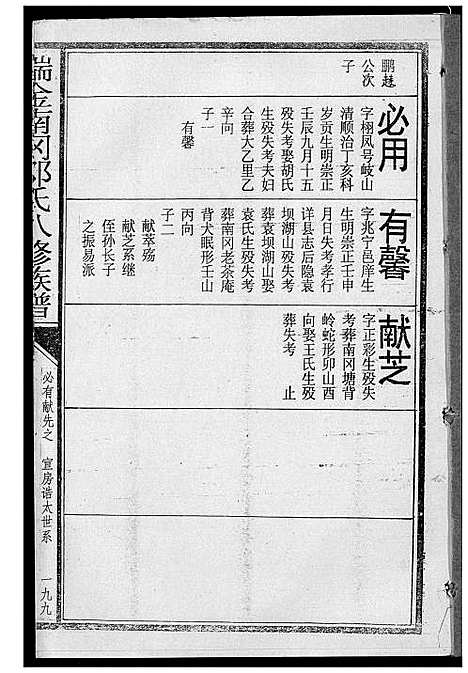 鹏越
公次
子
必用
字栩凤号岐山
清顺治丁亥科
岁贡生明崇正
壬辰九月十五
殁失考娶胡氏
生殁失考夫妇
合葬大乙里乙
辛向
子一
有馨
有馨
字兆宁邑庠生
生明崇正壬申
月日失考孝行
详县志后隐袁
坝湖山殁失考
葬袁坝湖山娶
袁氏生殁失考
葬南冈老茶庵
背犬眠形壬山
丙向
子二
献萃殇
献芝系继
侄孙长子
之振易派
献芝
字正彩生殁失
考葬南冈塘背
岭蛇形卯山酉
向娶王氏生殁
葬失考 止
瑞金南冈邓氏八修族谱
必有献先之 宣房诰太世系 一九九